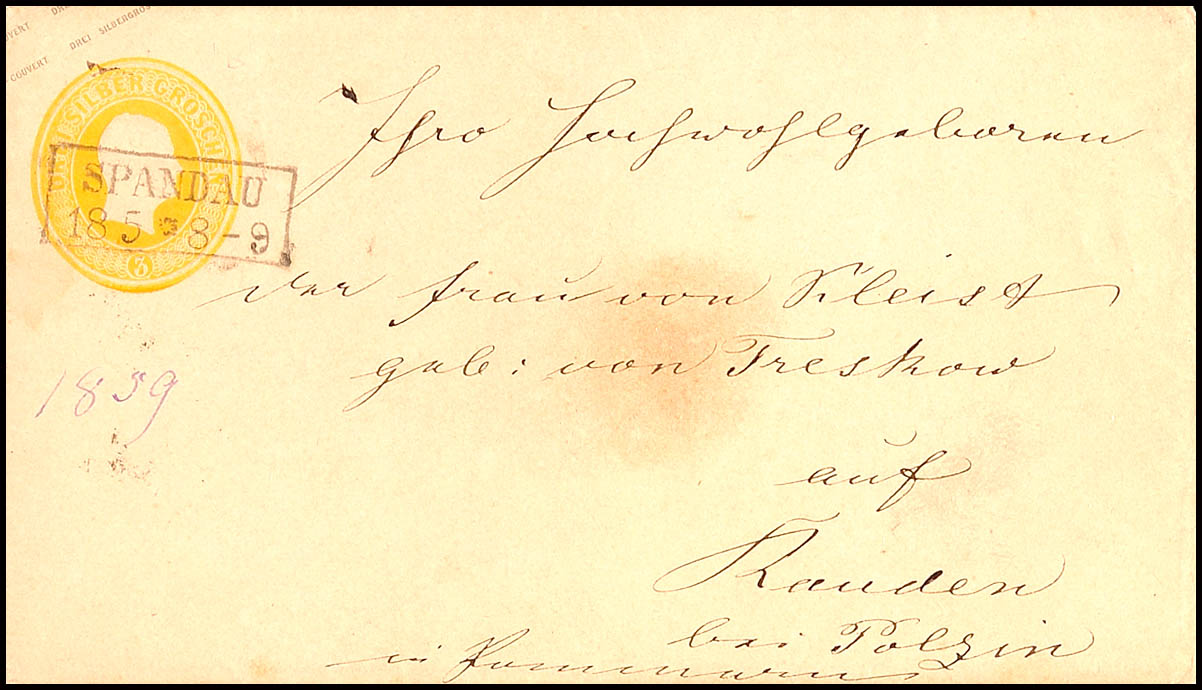 DREI SILBERGROS
COUVERT
DREI SILBER GROSCHEN
3
SPANDAU
18 5 * 8 - 9
Ihro Hochwohlgeboren
der Frau von Kleist
geb: von Treskow
1859
auf
Rauden
bei Polzin
in Pommern